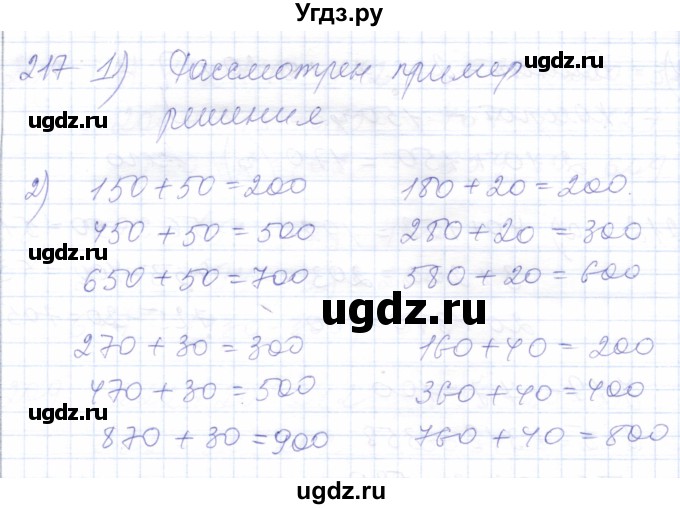 Угдз.ру
217 1) Рассмотрен пример
решения
ugdz.ru ugdz.ru
2) 150 + 50 = 200 180 + 20 = 200.
450 + 50 = 500 280 + 20 = 300
ugdz.ru ugdz.ru
650 + 50 = 700 580 + 20 = 600
ugdz.ru
270 + 30 = 300 160 + 40 = 200
470 + 30 = 500 360 + 40 = 400
ugdz.ru ugdz.ru
870 + 30 = 900 760 + 40 = 800
ugdz.ru